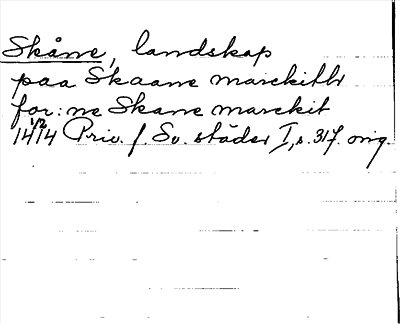 Skåne, landskap
paa Skaane marckith
for: ne Skane marckit
14 1/2 14 Priv. f. Sv. städer I, s. 317. orig.